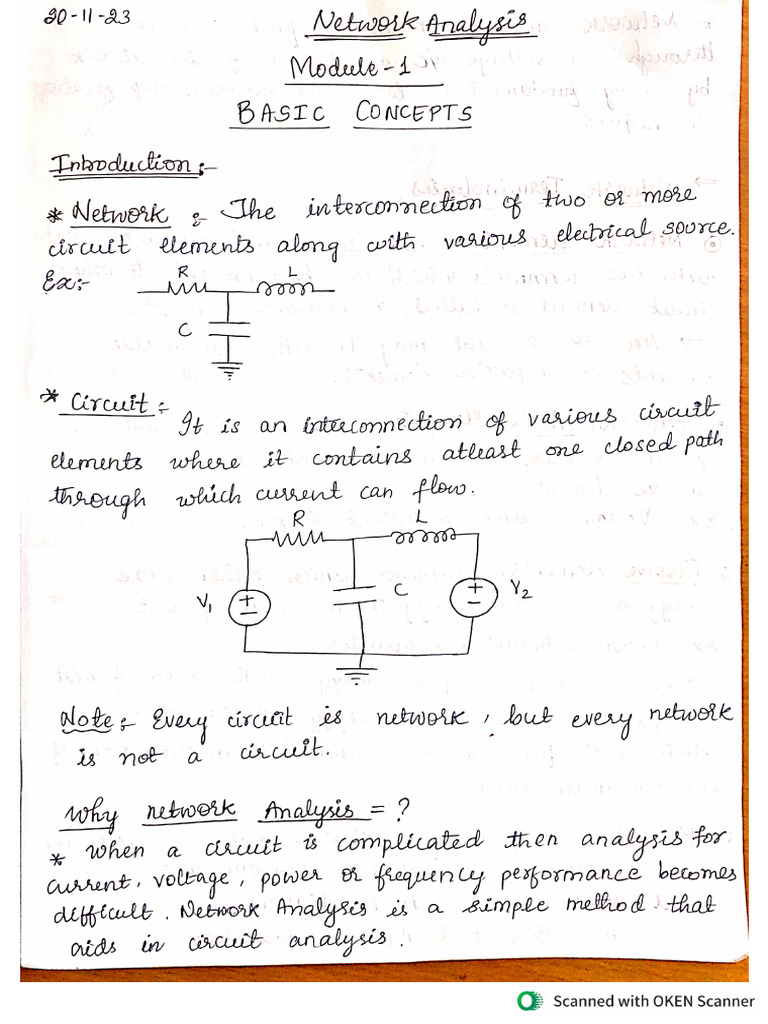 20-11-23
Network Analysis
Module-1
BASIC CONCEPTS
Introduction:-
* Network :- The interconnection of two or more
circuit elements along with various electrical source.
Ex:-
R
L
C
* Circuit :-
It is an interconnection of various circuit
elements where it contains atleast one closed path
through which current can flow.
R
L
V1
+
-
C
+
-
V2
Note :- Every circuit is network, but every network
is not a circuit.
Why network Analysis = ?
* When a circuit is complicated then analysis for
current, voltage, power or frequency performance becomes
difficult. Network Analysis is a simple method that
aids in circuit analysis.
Scanned with OKEN Scanner